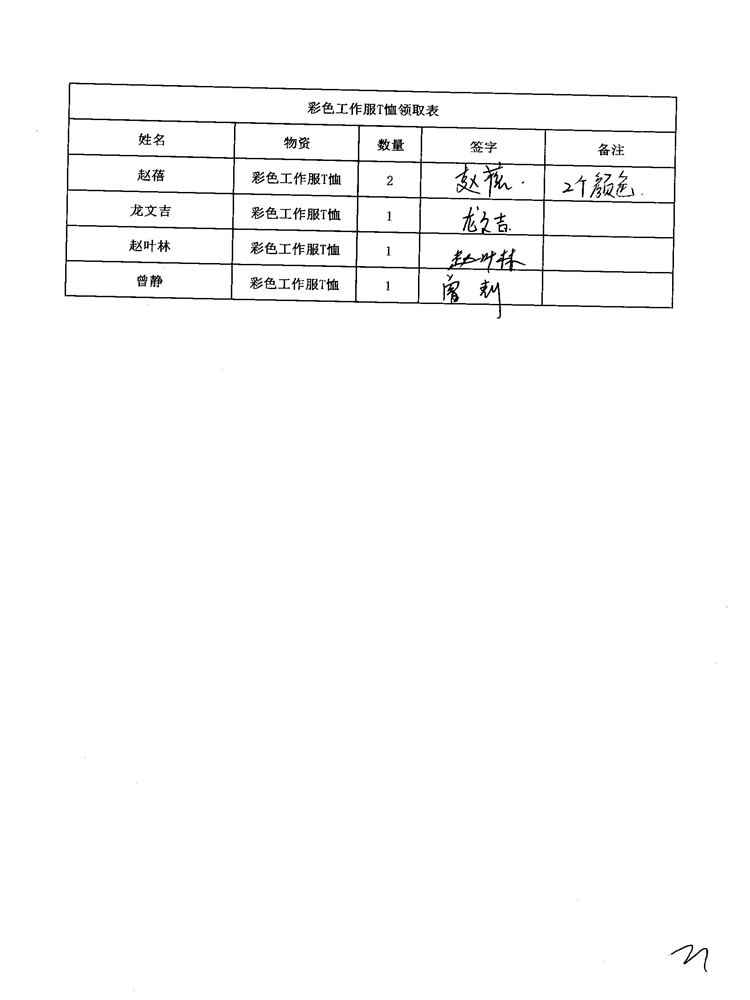 彩色工作服T恤领取表
姓名 物资 数量 签字 备注
赵蓓 彩色工作服T恤 2 赵蓓. 2个颜色.
龙文吉 彩色工作服T恤 1 龙文吉
赵叶林 彩色工作服T恤 1 赵叶林
曾静 彩色工作服T恤 1 曾